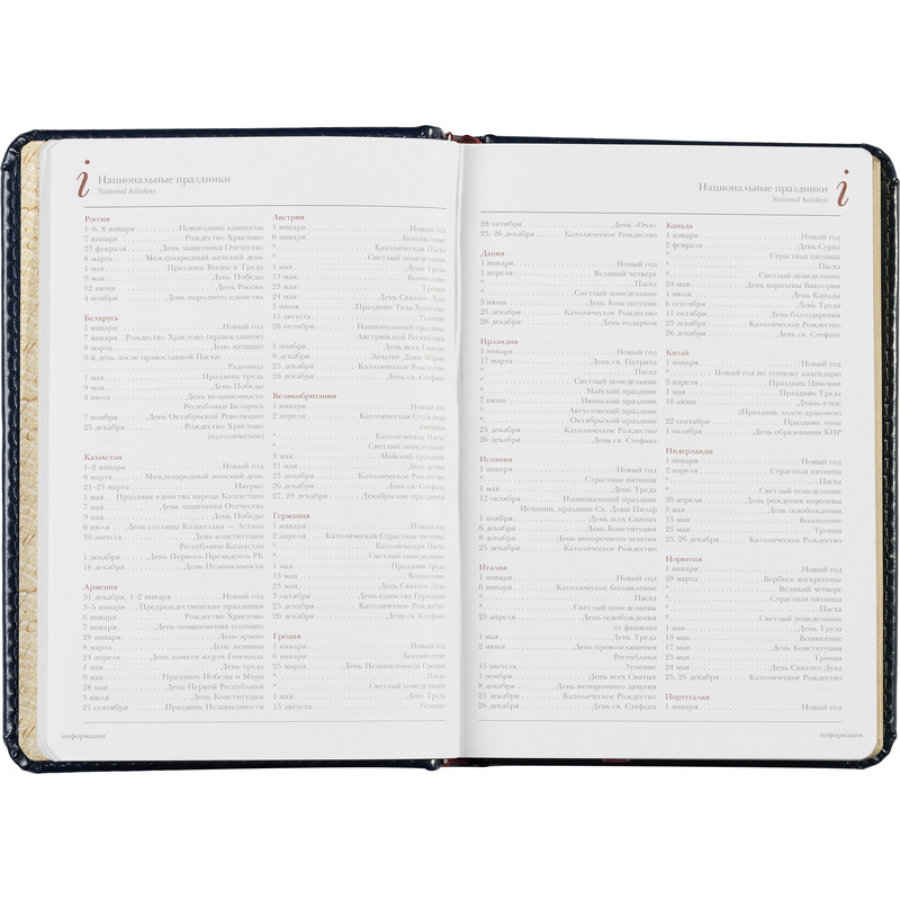 i
Национальные праздники
National holidays
Россия
1–6, 8 января Новогодние каникулы
7 января Рождество Христово
23 февраля День защитника Отечества
8 марта Международный женский день
1 мая Праздник Весны и Труда
9 мая День Победы
12 июня День России
4 ноября День народного единства
Беларусь
1 января Новый год
7 января Рождество Христово (православное)
8 марта День женщин
9-й день после православной Пасхи
Радуница
1 мая Праздник труда
9 мая День Победы
3 июля День независимости
Республики Беларусь
7 ноября День Октябрьской Революции
25 декабря Рождество Христово
(католическое)
Казахстан
1–2 января Новый год
8 марта Международный женский день
21–23 марта Наурыз
1 мая Праздник единства народа Казахстана
7 мая День защитника Отечества
9 мая День Победы
6 июля День столицы Казахстана — Астана
30 августа День конституции
Республики Казахстан
1 декабря День Первого Президента РК
16 декабря День Независимости
Армения
31 декабря, 1–2 января Новый год
3–5 января Предрождественские праздники
6 января Рождество Христово
7 января День поминовения усопших
28 января День армии
8 марта День женщин
24 апреля День памяти жертв Геноцида
1 мая День труда
9 мая Праздник Победы и Мира
28 мая День Первой Республики
5 июля День Конституции
21 сентября Праздник Независимости
Австрия
1 января Новый год
6 января Богоявление
* Католическая Пасха
* Светлый понедельник
1 мая День Труда
13 мая Вознесение
23 мая Троица
24 мая День Святого Духа
3 июня Праздник Тела Христова
15 августа Успение
26 октября Национальный праздник
Австрийской Республики
1 ноября День всех Святых
8 декабря Зачатие Девы Марии
25 декабря Католическое Рождество
26 декабря День св. Стефана
Великобритания
1 января Новый год
2 апреля Католическая Страстная
пятница
* Католическая Пасха
* Светлый понедельник
3 мая Майский праздник
31 мая День весны
25 декабря Католическое Рождество
27, 28 декабря Декабрьские праздники
Германия
1 января Новый год
2 апреля Католическая Страстная пятница
* Католическая Пасха
* Светлый понедельник
1 мая Праздник труда
13 мая Вознесение
23 мая День Святого Духа
3 октября День единства Германии
25 декабря Католическое Рождество
26 декабря День св. Стефана
Греция
1 января Новый год
6 января Богоявление
25 марта День Независимости Греции
* Пасха
* Светлый понедельник
1 мая День Труда
15 августа Успение
информация
Национальные праздники
National holidays
i
28 октября День «Охи»
25, 26 декабря Католическое Рождество
Дания
1 января Новый год
1 апреля Великий четверг
* Пасха
* Светлый понедельник
5 июня День Конституции
25 декабря Католическое Рождество
26 декабря День подарков
Ирландия
1 января Новый год
17 марта День св. Патрика
* Пасха
* Светлый понедельник
* Майский праздник
7 июня Июньский праздник
* Августовский праздник
* Октябрьский праздник
25 декабря Католическое Рождество
26 декабря День св. Стефана
Испания
1 января Новый год
* Страстная пятница
1 мая День Труда
12 октября Национальный праздник
Испании, праздник Св. Девы Пилар
1 ноября День всех Святых
6 декабря День Конституции
8 декабря День непорочного зачатия
25 декабря Католическое Рождество
Италия
1 января Новый год
6 января Католическое богоявление
* Пасха
* Светлый понедельник
25 апреля День освобождения
от фашизма
1 мая День Труда
2 июня День провозглашения
Республики
15 августа Успение
1 ноября День всех Святых
8 декабря День непорочного зачатия
25 декабря Католическое Рождество
26 декабря День св. Стефана
Канада
1 января Новый год
2 февраля День Сурка
* Страстная пятница
* Пасха
* Светлый понедельник
24 мая День королевы Виктории
1 июля День Канады
6 сентября День Труда
11 октября День благодарения
25 декабря Католическое Рождество
26 декабря День св. Стефана
Китай
1 января Новый год
* Новый год по лунному календарю
5 апреля Праздник Цин-мин
1 мая Праздник Труда
16 июня Дуань-у-цзе
(Праздник лодок-драконов)
22 сентября Праздник луны
1 октября День образования КНР
Нидерланды
1 января Новый год
2 апреля Страстная пятница
* Пасха
* Светлый понедельник
30 апреля День рождения королевы
5 мая День освобождения
13 мая Вознесение
23 мая Троица
25, 26 декабря Католическое Рождество
Норвегия
1 января Новый год
28 марта Вербное воскресенье
* Великий четверг
* Страстная пятница
* Пасха
* Светлый понедельник
1 мая День Труда
13 мая Вознесение
17 мая День Конституции
23 мая Троица
24 мая День Святого Духа
25, 26 декабря Католическое Рождество
Португалия
1 января Новый год
информация